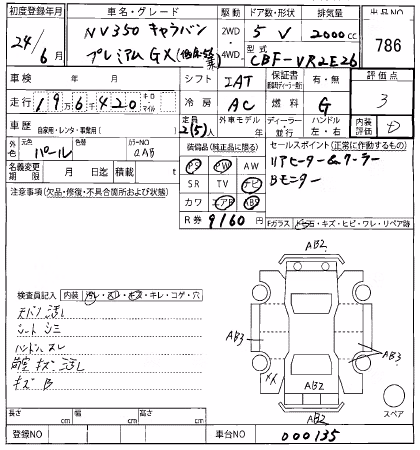 初度登録年月 車名・グレード 駆動 ドア数・形状 排気量 出品NO
24/6月 NV350 キャラバン 2WD 5 V 2000cc 786
プレミアムGX 4WD 型式 CBF-VR2E26
車検 年 月 シフト IAT 保証書 有・無 評価点
走行 19万6千420 キロ マイル 冷房 AC 燃料 G 3
車歴 自家用・レンタ・事業用 定員 2(5)人 外車モデル 年 ディーラー 並行 ハンドル 左・右 内装評価 D
外色 元色 パール 色替 カラーNO QAB 装備品(純正品に限る) セールスポイント(正常に作動するもの)
名義変更期限 月 日迄 積載 t PS PW AW リアヒーター&クーラー
注意事項(欠品・修復・不具合箇所および状態) SR TV ナビ Bモニター
カワ エアB ABS
R券 9160円 Fガラス トビ石・キズ・ヒビ・ワレ・リペア跡
AB2
検査員記入 内装 汚レ・スリ・キズ・キレ・コゲ・穴
天バリ 汚レ
シート シミ
ハンドル スレ
荷室 キズ 汚レ
キズ B
AB3
AB3
XX
AB2
AB2
スペア
長さ cm 幅 cm 高さ cm
登録NO 車台NO 000135